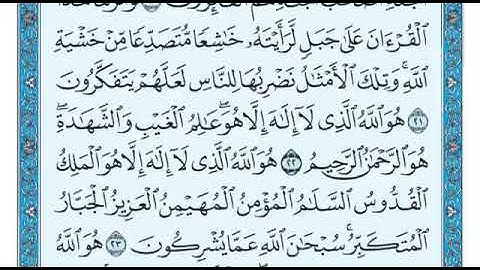 ٱلۡقُرۡءَانَ عَلَىٰ جَبَلٖ لَّرَأَيۡتَهُۥ خَٰشِعٗا مُّتَصَدِّعٗا مِّنۡ خَشۡيَةِ
ٱللَّهِۚ وَتِلۡكَ ٱلۡأَمۡثَٰلُ نَضۡرِبُهَا لِلنَّاسِ لَعَلَّهُمۡ يَتَفَكَّرُونَ
٢١ هُوَ ٱللَّهُ ٱلَّذِي لَآ إِلَٰهَ إِلَّا هُوَۖ عَٰلِمُ ٱلۡغَيۡبِ وَٱلشَّهَٰدَةِۖ
هُوَ ٱلرَّحۡمَٰنُ ٱلرَّحِيمُ ٢٢ هُوَ ٱللَّهُ ٱلَّذِي لَآ إِلَٰهَ إِلَّا هُوَ ٱلۡمَلِكُ
ٱلۡقُدُّوسُ ٱلسَّلَٰمُ ٱلۡمُؤۡمِنُ ٱلۡمُهَيۡمِنُ ٱلۡعَزِيزُ ٱلۡجَبَّارُ
ٱلۡمُتَكَبِّرُۚ سُبۡحَٰنَ ٱللَّهِ عَمَّا يُشۡرِكُونَ ٢٣ هُوَ ٱللَّهُ